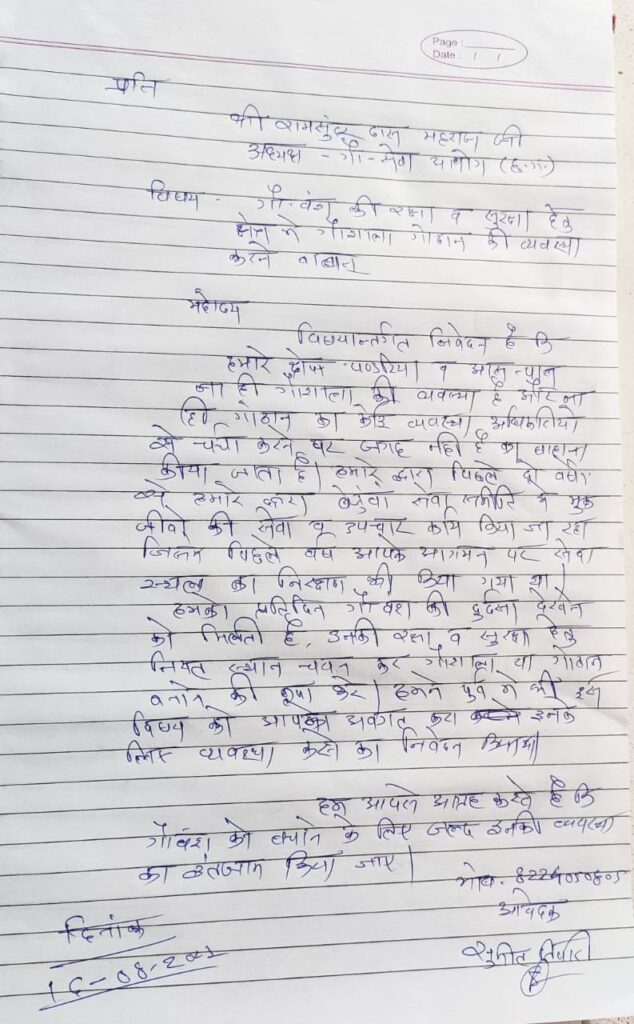 Page :
Date : / /
प्रति
श्री रामसुंदर दास महराज जी
अध्यक्ष - गौ-सेवा आयोग (छ.ग.)
विषय - गौ-वंश की रक्षा व सुरक्षा हेतु
क्षेत्र में गौशाला गोठान की व्यवस्था
करने बाबत्
महोदय
विषयान्तर्गत निवेदन है कि
हमारे क्षेत्र पण्डरिया व आस-पास
ना ही गौशाला की व्यवस्था है और ना
ही गोठान का कोई व्यवस्था अधिकारियो
से चर्चा करने पर जगह नही है का बहाना
कीया जाता है। हमारे द्वारा पिछले दो वर्षो
से हमारे द्वारा सेवा समीति मे मुक
जीवो की सेवा व उपचार कार्य किया जा रहा
जिसमे पिछले वर्ष आपके आगमन पर सेवा
स्थल का निरक्षण भी किया गया था।
हमको प्रतिदिन गौ वंश की दुर्दसा देखने
को मिलती है, उनकी रक्षा व सुरक्षा हेतु
नियत स्थान चयन कर गौशाला या गोठान
बनाने की कृपा करे। हमने पुर्व मे भी इस
विषय को आपको अवगत करा इनके
लिए व्यवस्था करने का निवेदन किया था
हम आपसे आग्रह करते है कि
गौवंश को बचाने के लिए जल्द इनकी व्यवस्था
का इंतजाम किया जाए।
मोब. 8224050805
आवेदक
दिनांक
16-08-2021
सुनीत तिवारी